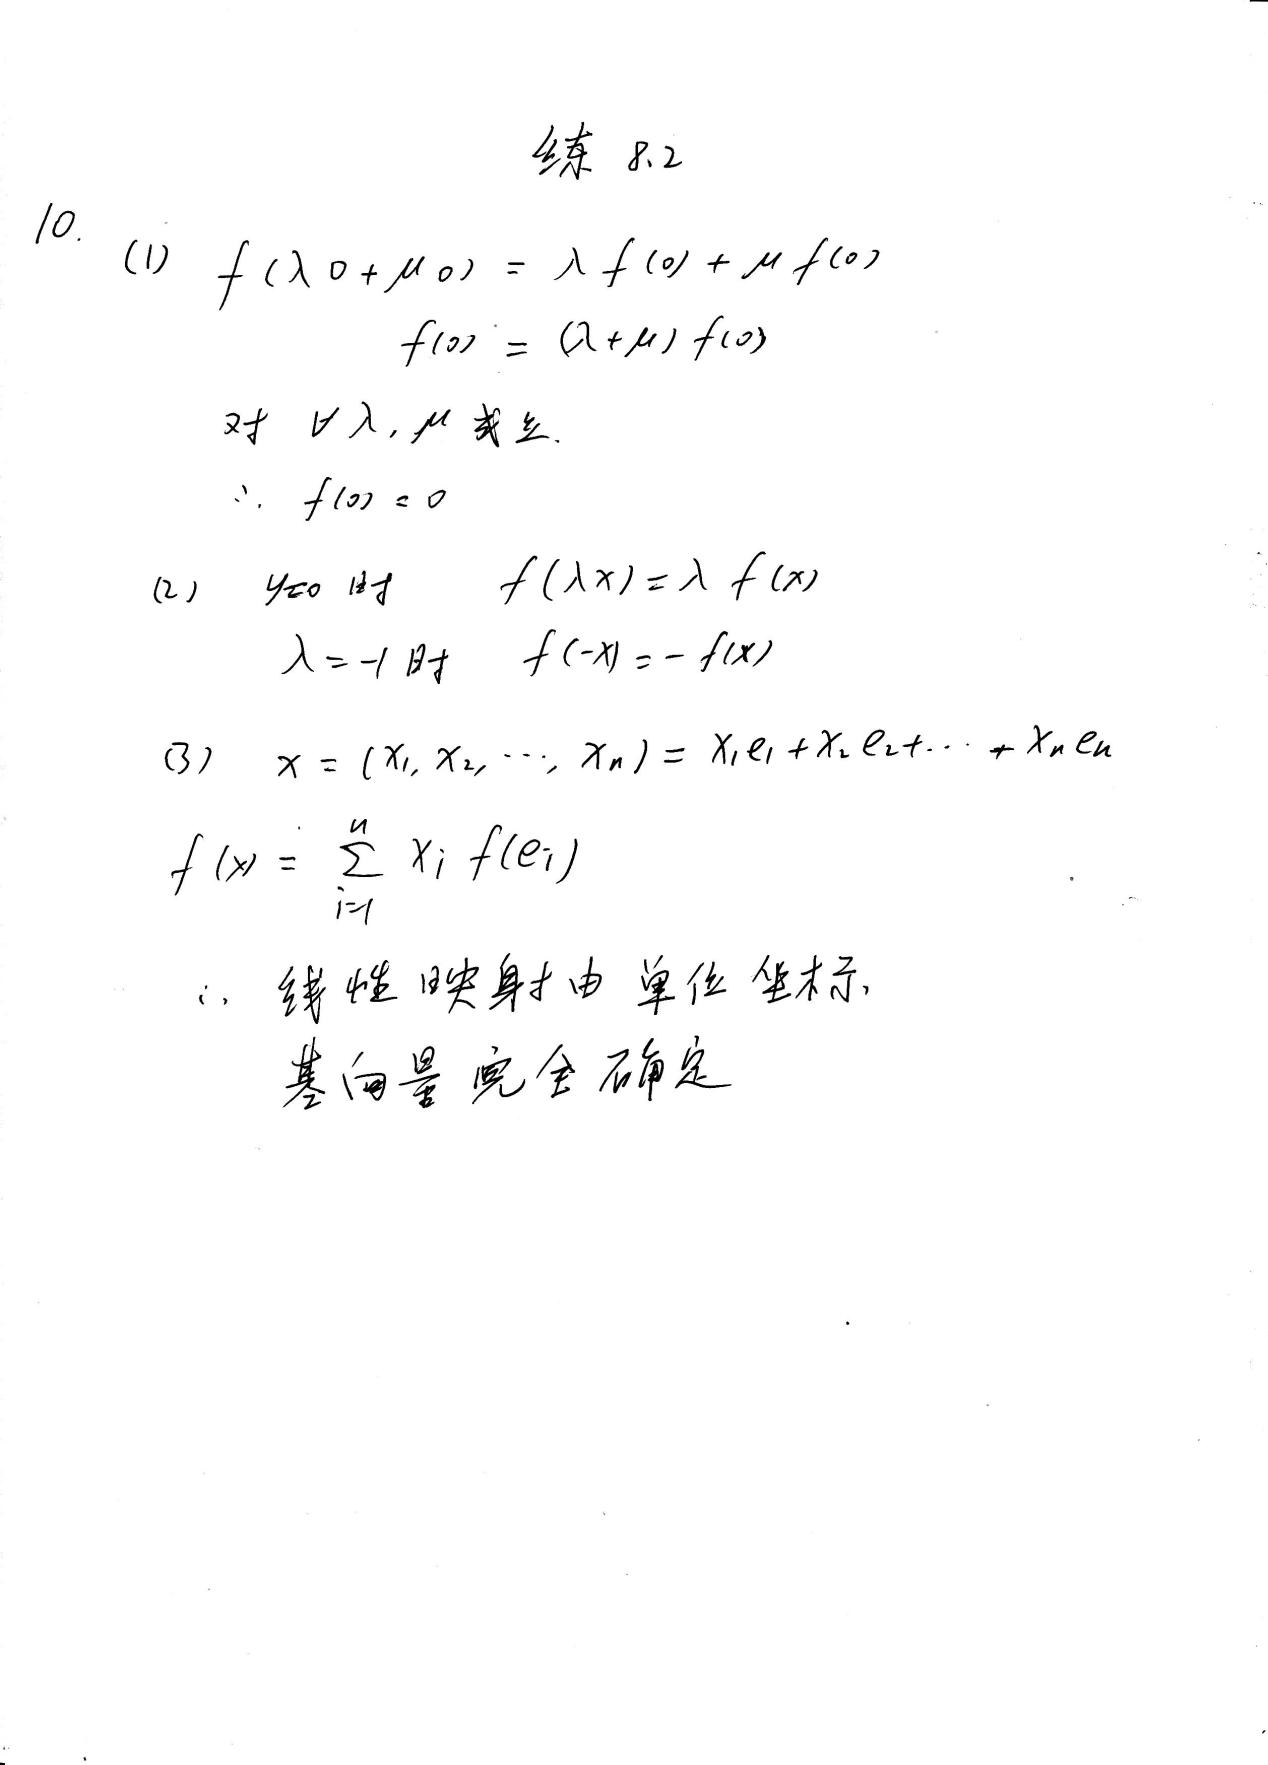 练 8.2
10.
(1) f(λ0+μ0) = λf(0) + μf(0)
f(0) = (λ+μ) f(0)
对 ∀λ, μ 成立.
∴ f(0) = 0
(2) y=0 时 f(λx) = λ f(x)
λ=-1 时 f(-x) = - f(x)
(3) x = (x₁, x₂, ⋯, xₙ) = x₁e₁ + x₂e₂ + ⋯ + xₙeₙ
f(x) = ∑_{i=1}^{n} xᵢ f(eᵢ)
∴ 线性映射由单位坐标
基向量完全确定